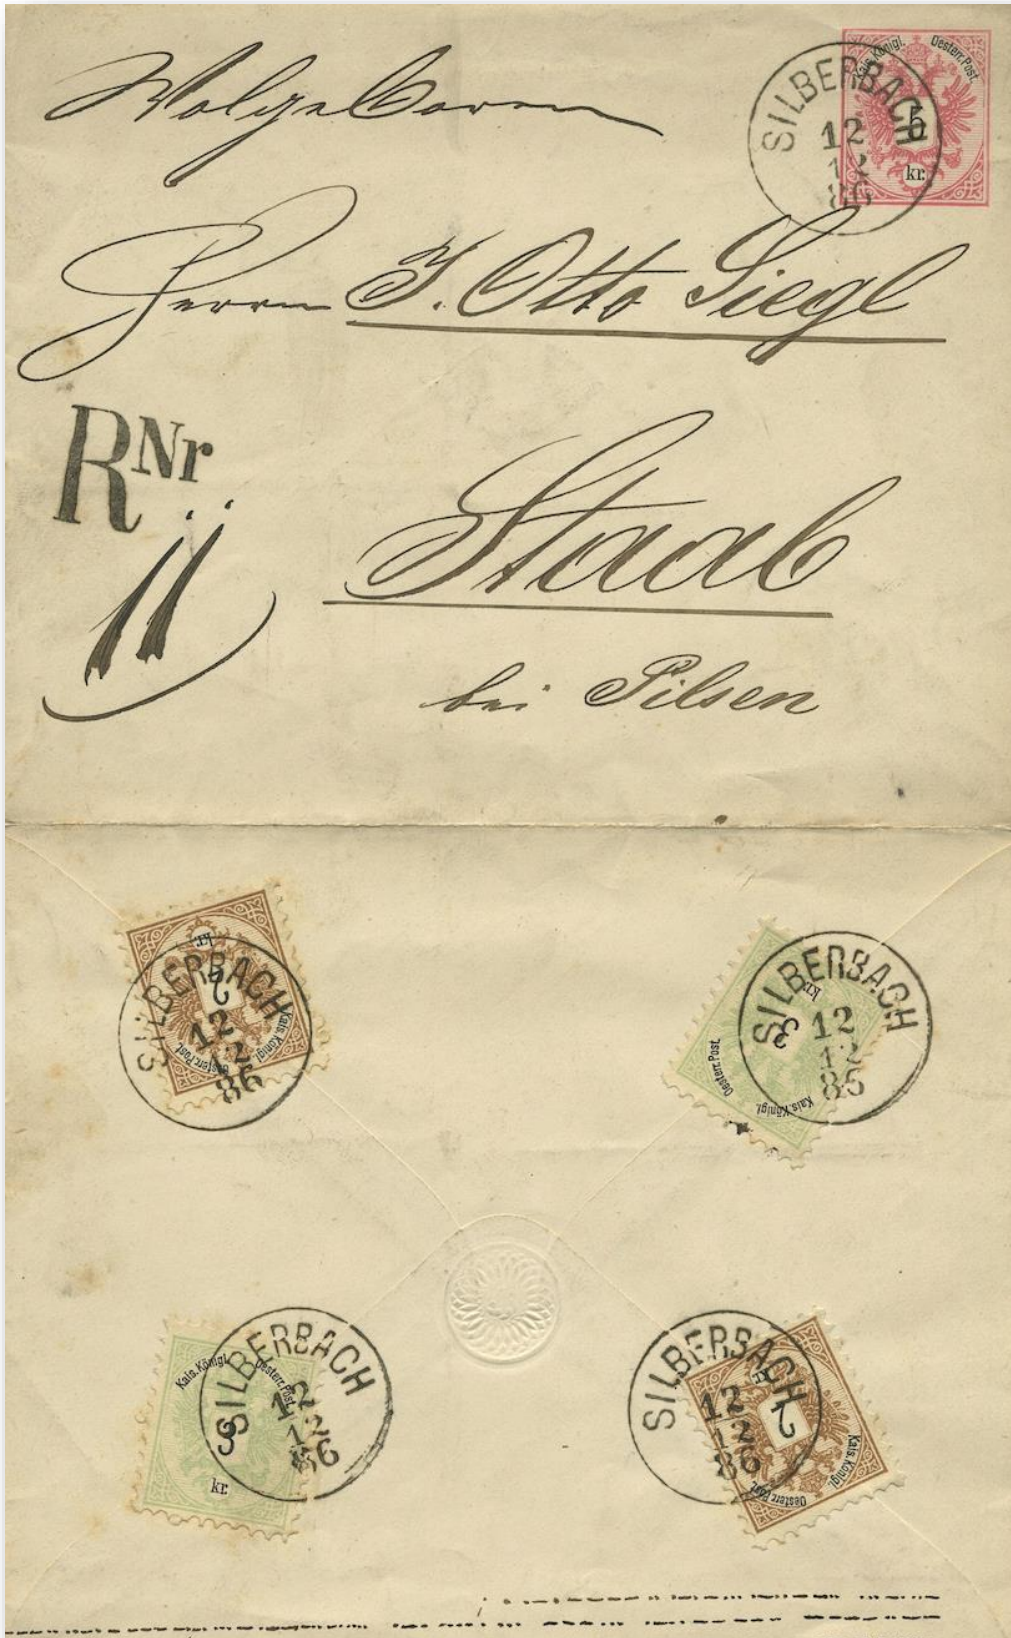 Wolgeboren
Kais. Königl. Oesterr. Post.
5
kr.
SILBERBACH
12
12
86
Herrn J. Otto Siegl
RNr
11
Staab
bei Pilsen
kr.
2
Kais. Königl. Oesterr. Post.
SILBERBACH
12
12
86
kr.
3
Kais. Königl. Oesterr. Post.
SILBERBACH
12
12
86
Kais. Königl. Oesterr. Post.
3
kr.
SILBERBACH
12
12
86
kr.
2
Kais. Königl. Oesterr. Post.
SILBERBACH
12
12
86